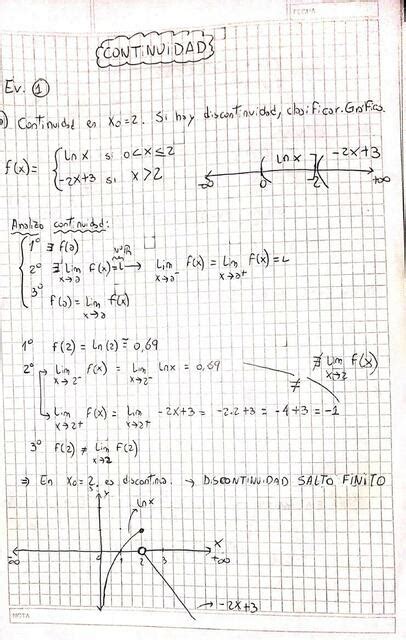 FECHA
CONTINUIDAD
Ev. ①
a) Continuidad en x₀=2. Si hay discontinuidad, clasificar. Gráfico.
f(x)= { ln x si 0<x≤2
-2x+3 si x>2
ln x -2x+3
-∞ 0 2 +∞
Analizo continuidad:
1º ∃ f(a)
2º ∃ Lim x→a f(x)=L → Lim x→a⁻ f(x) = Lim x→a⁺ f(x) = L
3º f(a) = Lim x→a f(x)
1º f(2) = ln(2) ≅ 0,69
2º → Lim x→2⁻ f(x) = Lim x→2⁻ ln x = 0,69
≠ ∄ Lim x→2 f(x)
↳ Lim x→2⁺ f(x) = Lim x→2⁺ -2x+3 = -2.2+3 = -4+3 = -1
3º f(2) ≠ Lim x→2 f(2)
⇒ En x₀=2, es discontinua. → DISCONTINUIDAD SALTO FINITO
y ln x
-∞ 1 2 3 x +∞
→ -2x+3
NOTA